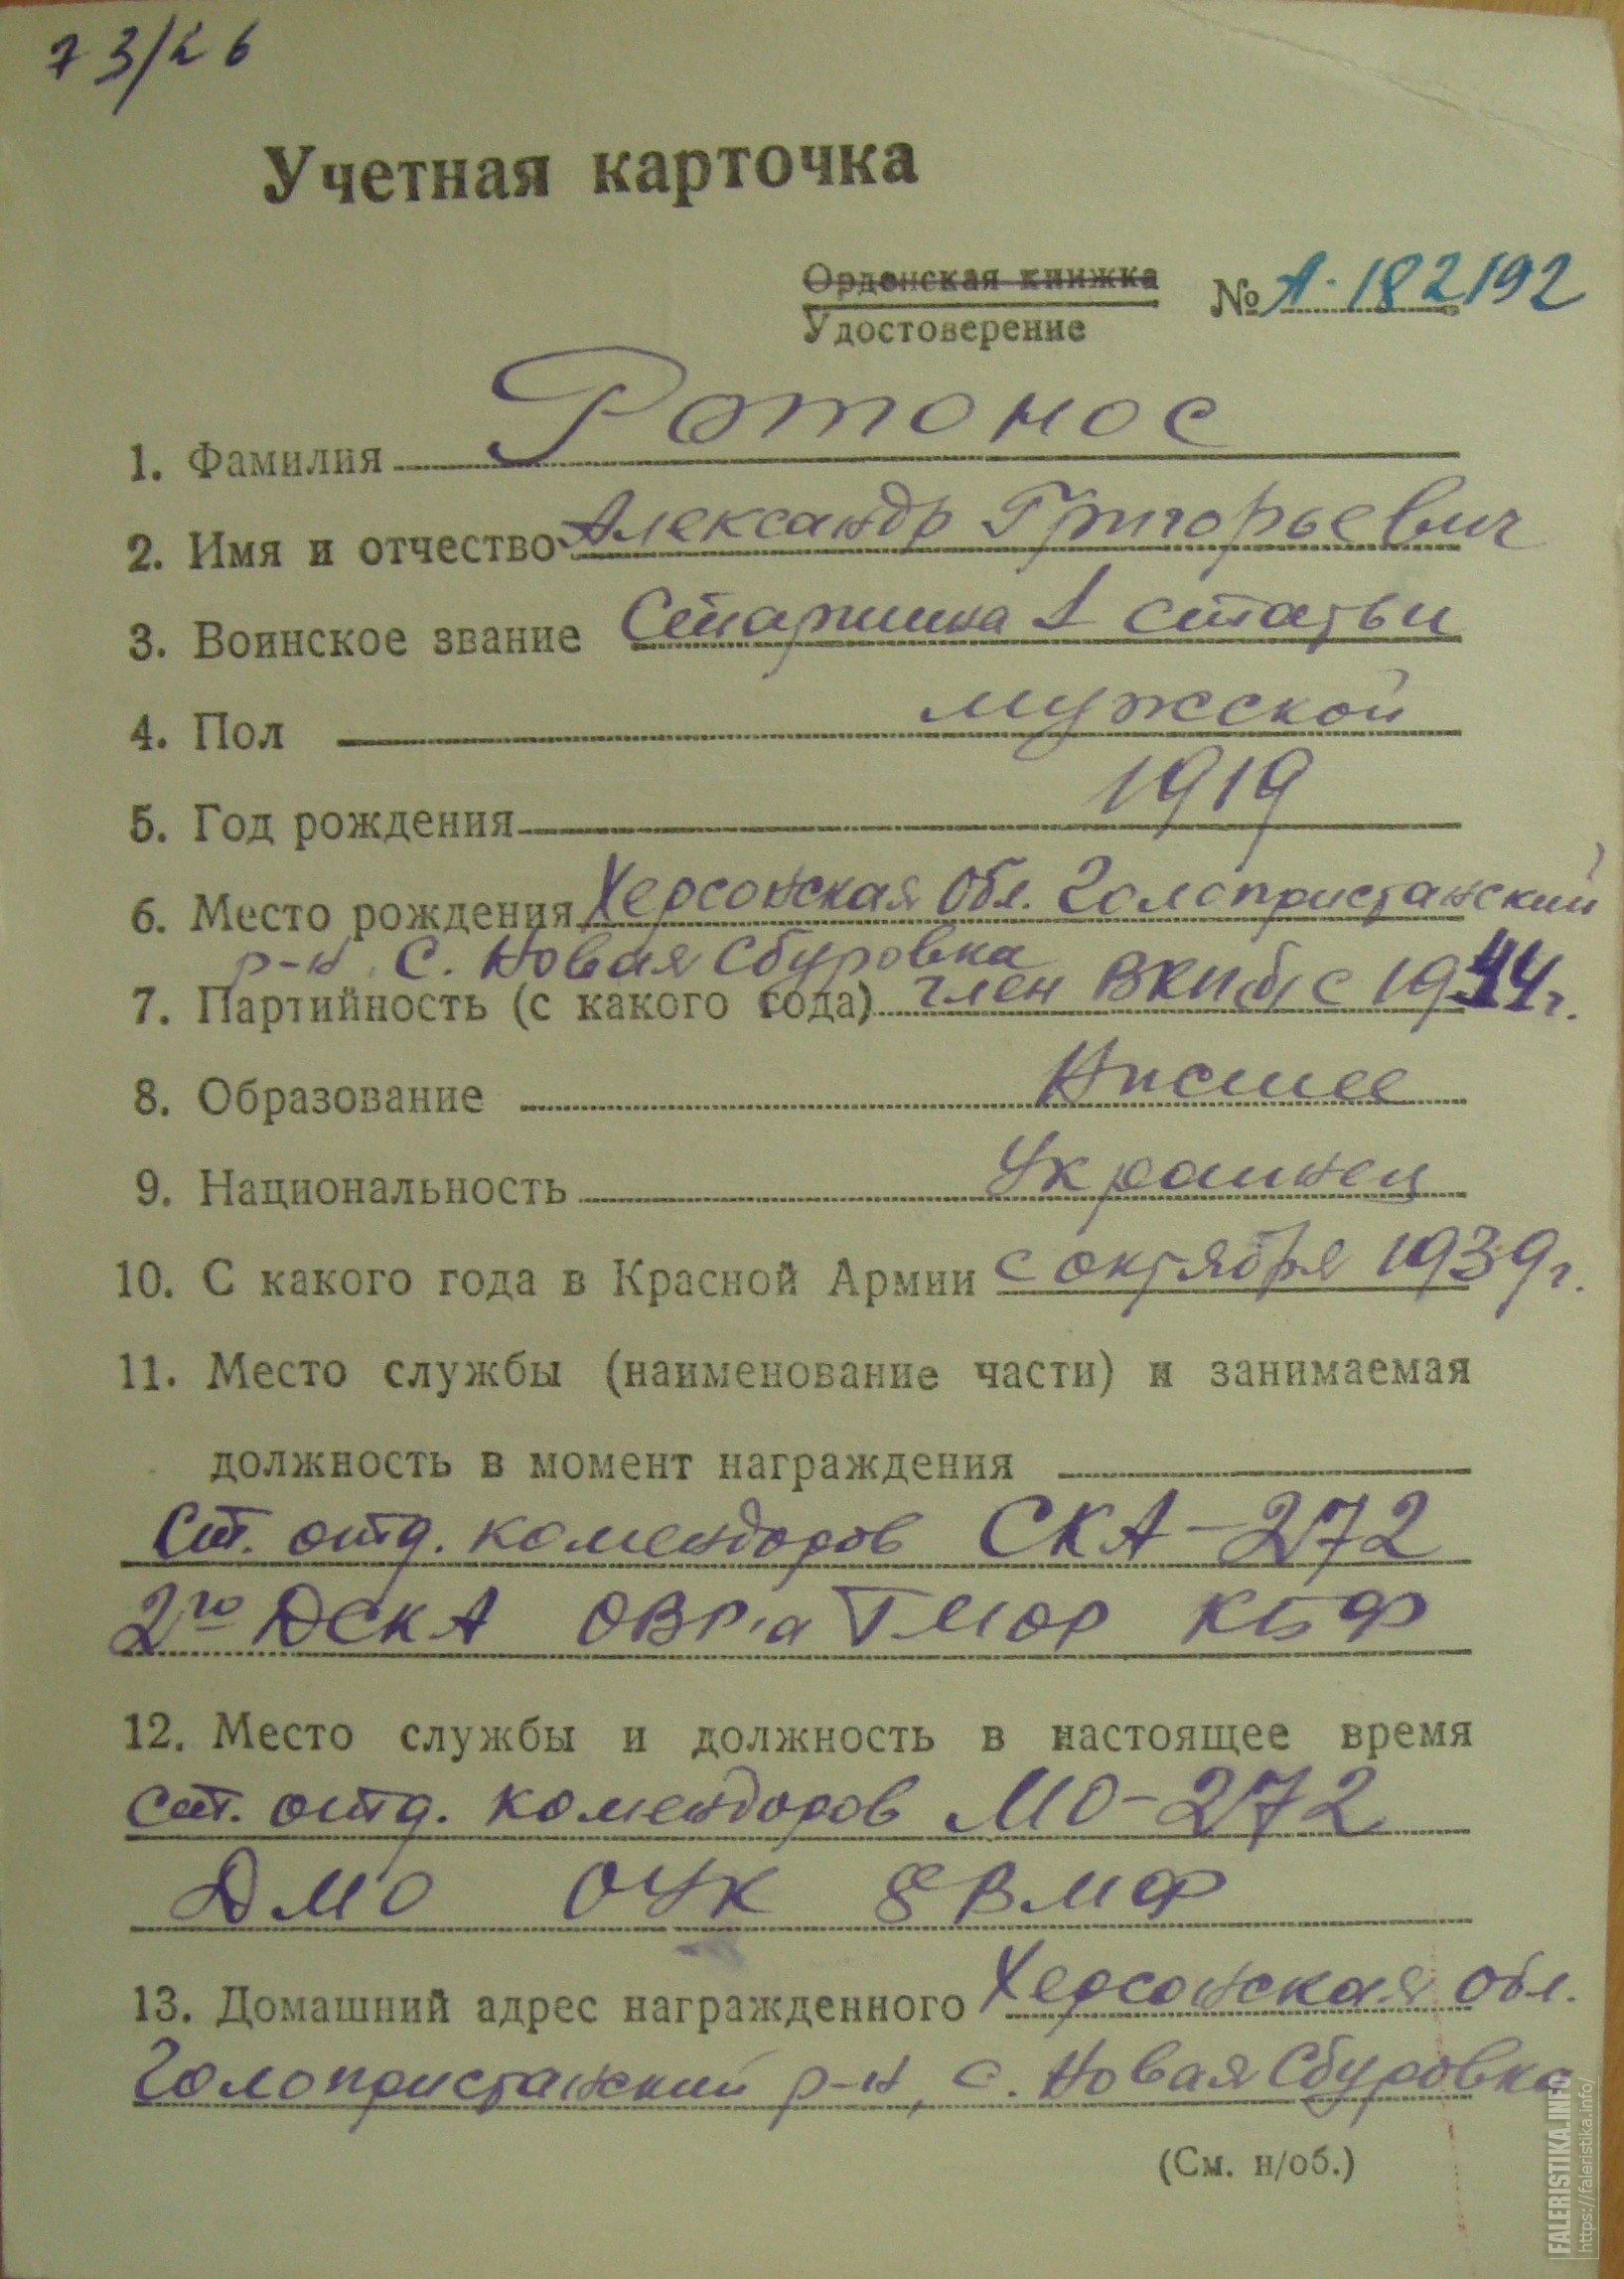 73/26
Учетная карточка
Орденская книжка
Удостоверение
№ А-182192
1. Фамилия Ротонос
2. Имя и отчество Александр Григорьевич
3. Воинское звание Старшина 1 статьи
4. Пол мужской
5. Год рождения 1919
6. Место рождения Херсонская обл. Голопристанский
р-н, с. Новая Сбуровка
7. Партийность (с какого года) член ВКПб с 1944г.
8. Образование Низшее
9. Национальность Украинец
10. С какого года в Красной Армии с октября 1939г.
11. Место службы (наименование части) и занимаемая
должность в момент награждения
Ст. отд. комендоров СКА-272
2го ДСКА ОВР'а ТМОР КБФ
12. Место службы и должность в настоящее время
Ст. отд. комендоров МО-272
ДМО ОУК 8ВМФ
13. Домашний адрес награжденного Херсонская обл.
Голопристанский р-н, с. Новая Сбуровка
(См. н/об.)
FALERISTIKA.INFO
https://faleristika.info/